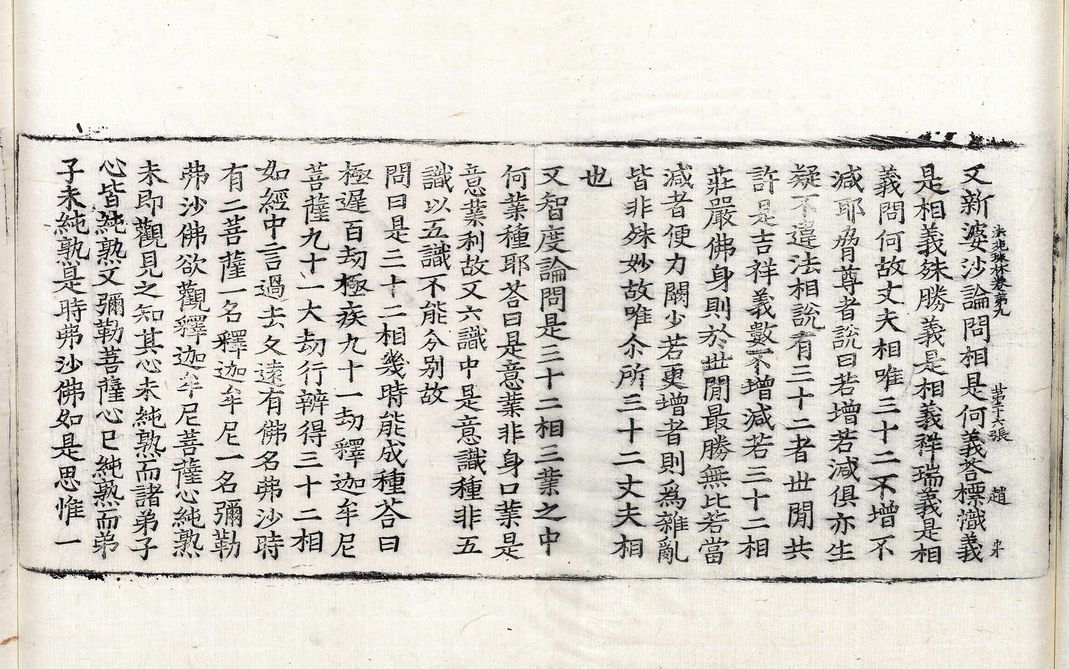 法苑珠林卷第九 廿第十六張 趙 來
又新婆沙論問相是何義荅標幟義
是相義殊勝義是相義祥瑞義是相
義問何故丈夫相唯三十二不增不
減耶脅尊者說曰若增若減俱亦生
疑不違法相說有三十二者世閒共
許是吉祥義數不增減若三十二相
莊嚴佛身則於世閒最勝無比若當
減者便力闕少若更增者則爲雜亂
皆非殊妙故唯尒所三十二丈夫相
也
又智度論問是三十二相三業之中
何業種耶荅曰是意業非身口業是
意業利故又六識中是意識種非五
識以五識不能分别故
問曰是三十二相幾時能成種荅曰
極遲百劫極疾九十一劫釋迦牟尼
菩薩九十一大劫行辦得三十二相
如經中言過去久遠有佛名弗沙時
有二菩薩一名釋迦牟尼一名彌勒
弗沙佛欲觀釋迦牟尼菩薩心純熟
未即觀見之知其心未純熟而諸弟子
心皆純熟又彌勒菩薩心已純熟而弟
子未純熟是時弗沙佛如是思惟一